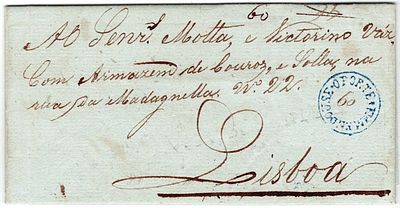 60
Ao Senr.s Motta, e Victorino Váz
Com Armazem de Couros, e Solla, na
rua da Madagnella. Nº 22.
PORTE
60
Lisboa